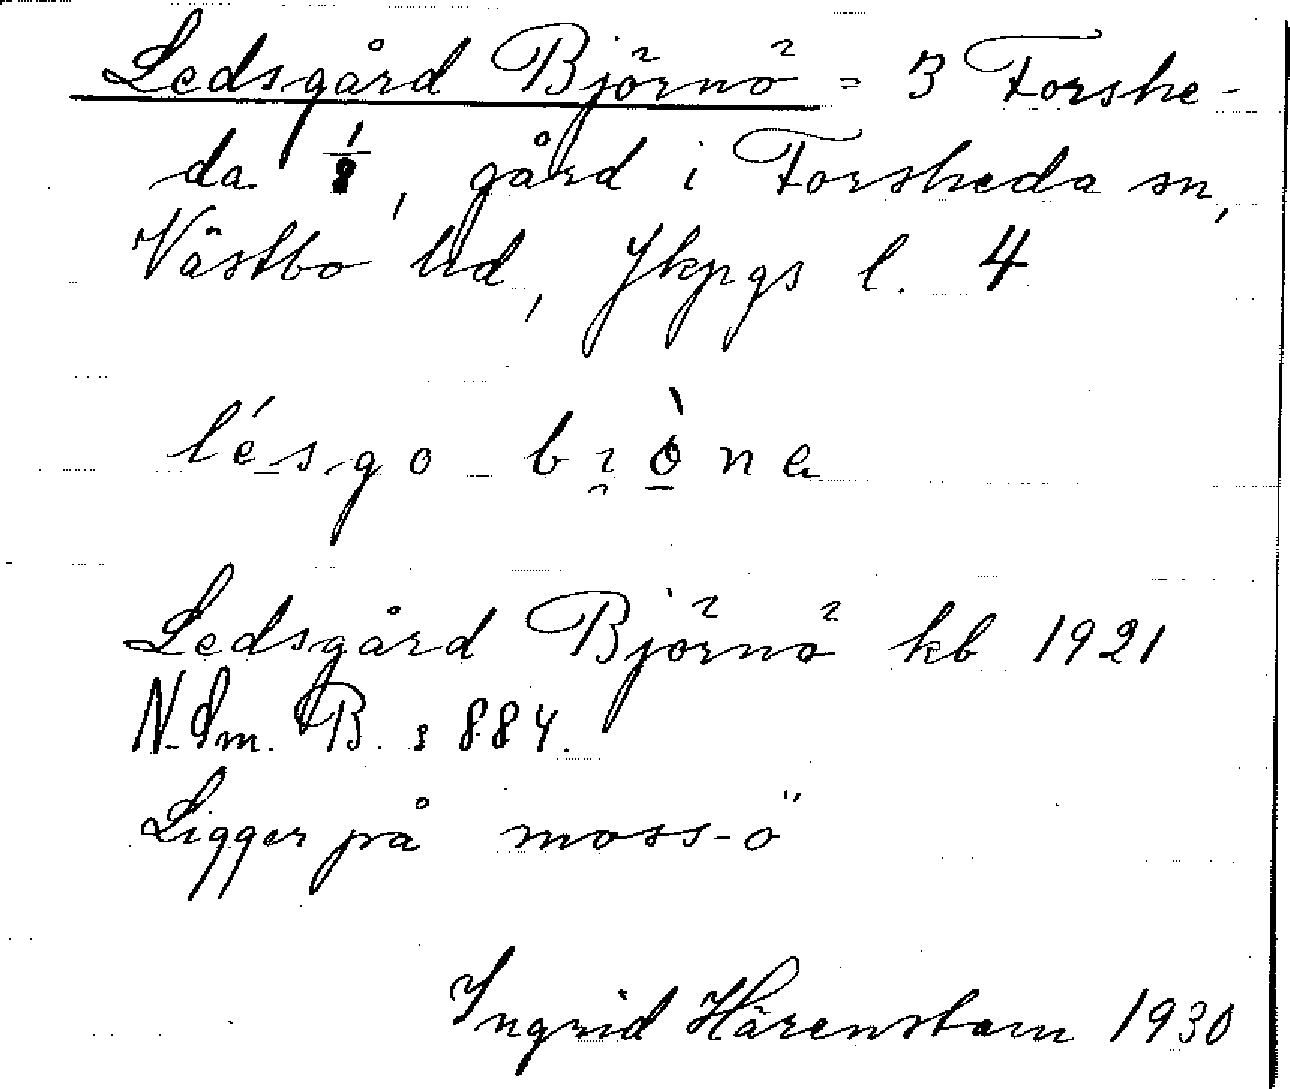 Ledsgård Björnö = 3 Forshe-
da 1/8, gård i Forsheda sn,
Västbo hd, Jkpgs l. 4
Ledsgård Björnö kb 1921
N. Sm. B. s 884.
Ligger på moss-ö
Ingrid Härenstam 1930